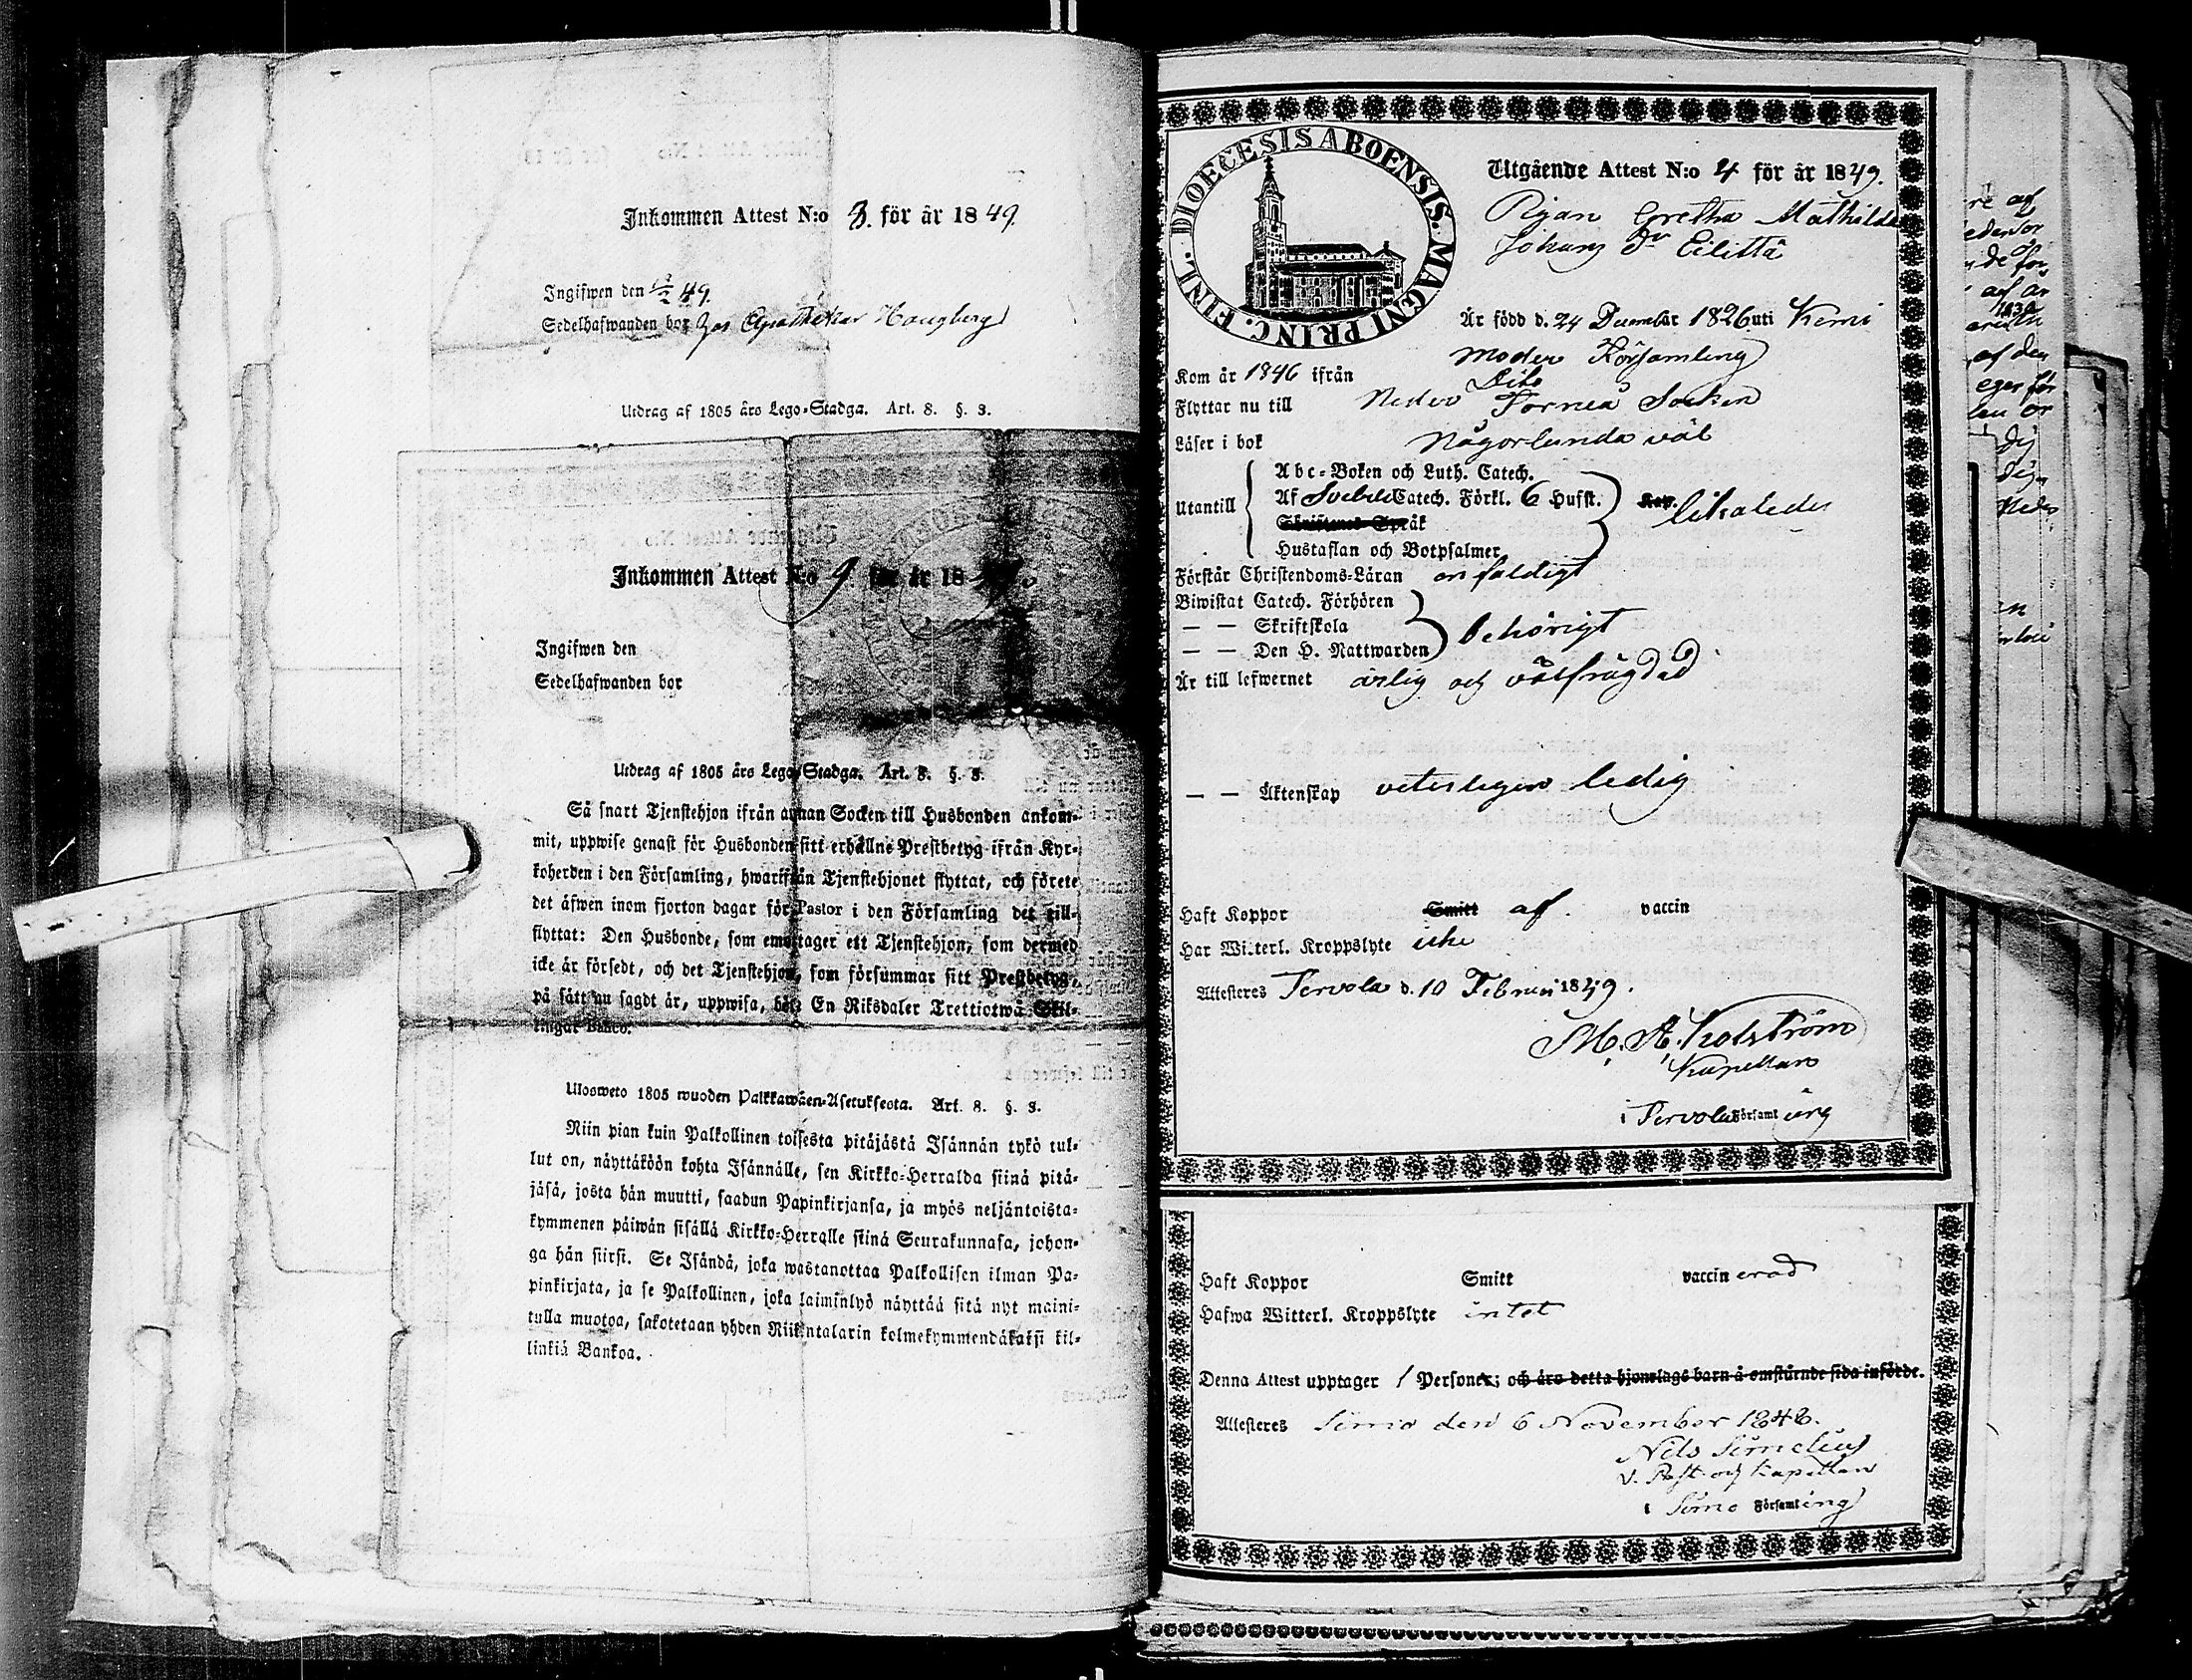 Inkommen Attest N:o 3. för år 1849.
Ingifwen den 49.
Sedelhafwanden bor hos Apothekar Haugberg
Utdrag af 1805 års Lego-Stadga. Art. 8. §. 3.
Inkommen Attest N:o 9. för år 18
Ingifwen den
Sedelhafwanden bor
Utdrag af 1805 års Lego-Stadga. Art. 8. §. 3.
Så snart Tjenstehjon ifrån annan Socken till Husbonden ankom-
mit, uppwise genast för Husbonden sitt erhållne Prestbetyg ifrån Kyr-
koherden i den Församling, hwarifrån Tjenstehjonet flyttat, och förete
det äfwen inom fjorton dagar för Pastor i den Församling det till-
flyttat: Den Husbonde, som emottager ett Tjenstehjon, som dermed
icke är försedt, och det Tjenstehjon, som försummar sitt Prestbetyg,
på sätt nu sagdt är, uppwisa, böte En Riksdaler Trettiotwå Skil-
lingar Banco.
Ulosweto 1805 wuoden Palkkawäen-Asetuksesta. Art. 8. §. 3.
Niin pian kuin Palkollinen toisesta pitäjästä Isännän tykö tul-
lut on, näyttäköön kohta Isännälle, sen Kirkko-Herralda siinä pitä-
jäsä, josta hän muutti, saadun Papinkirjansa, ja myös neljäntoista-
kymmenen päiwän sisällä Kirkko-Herralle siinä Seurakunnasa, johon-
ga hän siirsi. Se Isändä, joka wastanottaa Palkollisen ilman Pa-
pinkirjata, ja se Palkollinen, joka laiminlyö näyttää sitä nyt maini-
tulla muotoa, sakotetaan yhden Riikintalarin kolmekymmendäkaksi kil-
linkiä Bankoa.
DIOECESIS ABOENSIS. MAGNI PRINC. FINL.
Utgående Attest N:o 4 för år 1849.
Pigan Gretha Mathilda
Johans dr Eilittä
Är född d. 24 December 1826 uti Kemi
Moder Församling
Kom år 1846 ifrån Dito
Flyttar nu till Neder Torneå Socken
Läser i bok någorlunda väl
Utantill
Abc-Boken och Luth. Catech.
Af Svebel Catech. Förkl. 6 Hufst.
Skriftenes Språk
Hustaflan och Botpsalmer
likaledes
Förstår Christendoms-Läran enfaldigt
Biwistat Catech. Förhören
— — Skriftskola
— — Den H. Nattwarden
behörigt
Är till lefwernet ärlig och välfrägdad
— — Äktenskap veterligen ledig
Haft Koppor Smitt af vaccin
Har Witterl. Kroppslyte icke
Attesteres Tervola d. 10 Februari 1849.
M. A. Holström
Kapellan
i Tervola Församling
Haft Koppor Smitt vaccinerad
Hafwa Witterl. Kroppslyte intet
Denna Attest upptager 1 Personer; och äro detta hjonelags barn å omstående sida införde.
Attesteres Simo den 6 November 1848.
Nils Simelius
v. Past. och Kapellan
i Simo Församling